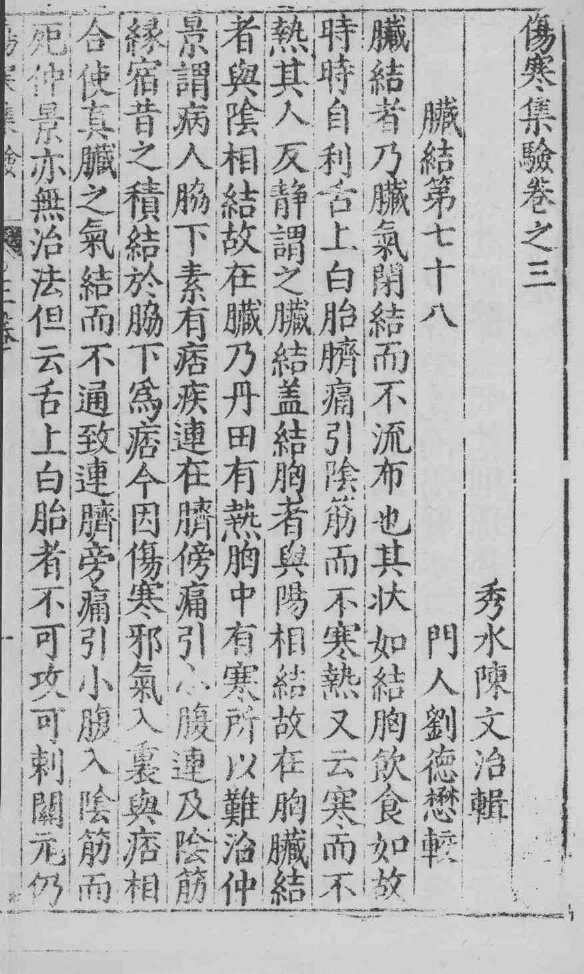 傷寒集驗卷之三
秀水陳文治輯
臟結第七十八
門人劉德懋較
臟結者乃臟氣閉結而不流布也其狀如結胸飲食如故
時時自利舌上白胎臍痛引陰筋而不寒熱又云寒而不
熱其人反靜謂之臟結盖結胸者與陽相結故在胸臟結
者與陰相結故在臟乃丹田有熱胸中有寒所以難治仲
景謂病人脇下素有痞疾連在臍傍痛引小腹連及陰筋
緣宿昔之積結於脇下為痞今因傷寒邪氣入裏與痞相
合使真臟之氣結而不通致連臍旁痛引小腹入陰筋而
死仲景亦無治法但云舌上白胎者不可攻可刺關元仍
傷寒集驗 三卷 一